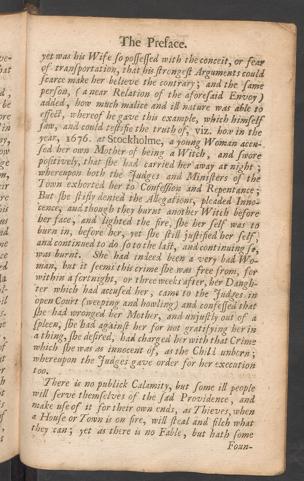 The Preface.
yet was his Wife so possessed with the conceit, or fear
of transportation, that his strongest Arguments could
scarce make her believe the contrary; and the same
person, (a near Relation of the aforesaid Envoy)
added, how much malice and ill nature was able to
effect, whereof he gave this example, which himself
saw, and could testifie the truth of, viz. how in the
year, 1676. at Stockholme, a young Woman accu-
sed her own Mother of being a Witch, and swore
positively, that she had carried her away at night;
whereupon both the Judges and Ministers of the
Town exhorted her to Confession and Repentance;
But she stifly denied the Allegations, pleaded Inno-
cence, and though they burnt another Witch before
her face, and lighted the fire, she her self was to
burn in, before her, yet she still justified her self,
and continued to do so to the last, and continuing so,
was burnt. She had indeed been a very bad Wo-
man, but it seems this crime she was free from, for
within a fortnight, or three weeks after, her Daugh-
ter which had accused her, came to the Judges in
open Court (weeping and howling) and confessed that
she had wronged her Mother, and unjustly out of a
spleen, she had against her for not gratifying her in
a thing, she desired, had charged her with that Crime
which she was as innocent of, as the Child unborn;
whereupon the Judges gave order for her execution
too.
There is no publick Calamity, but some ill people
will serve themselves of the sad Providence, and
make use of it for their own ends, as Thieves, when
a House or Town is on fire, will steal and filch what
they can; yet as there is no Fable, but hath some
Foun-